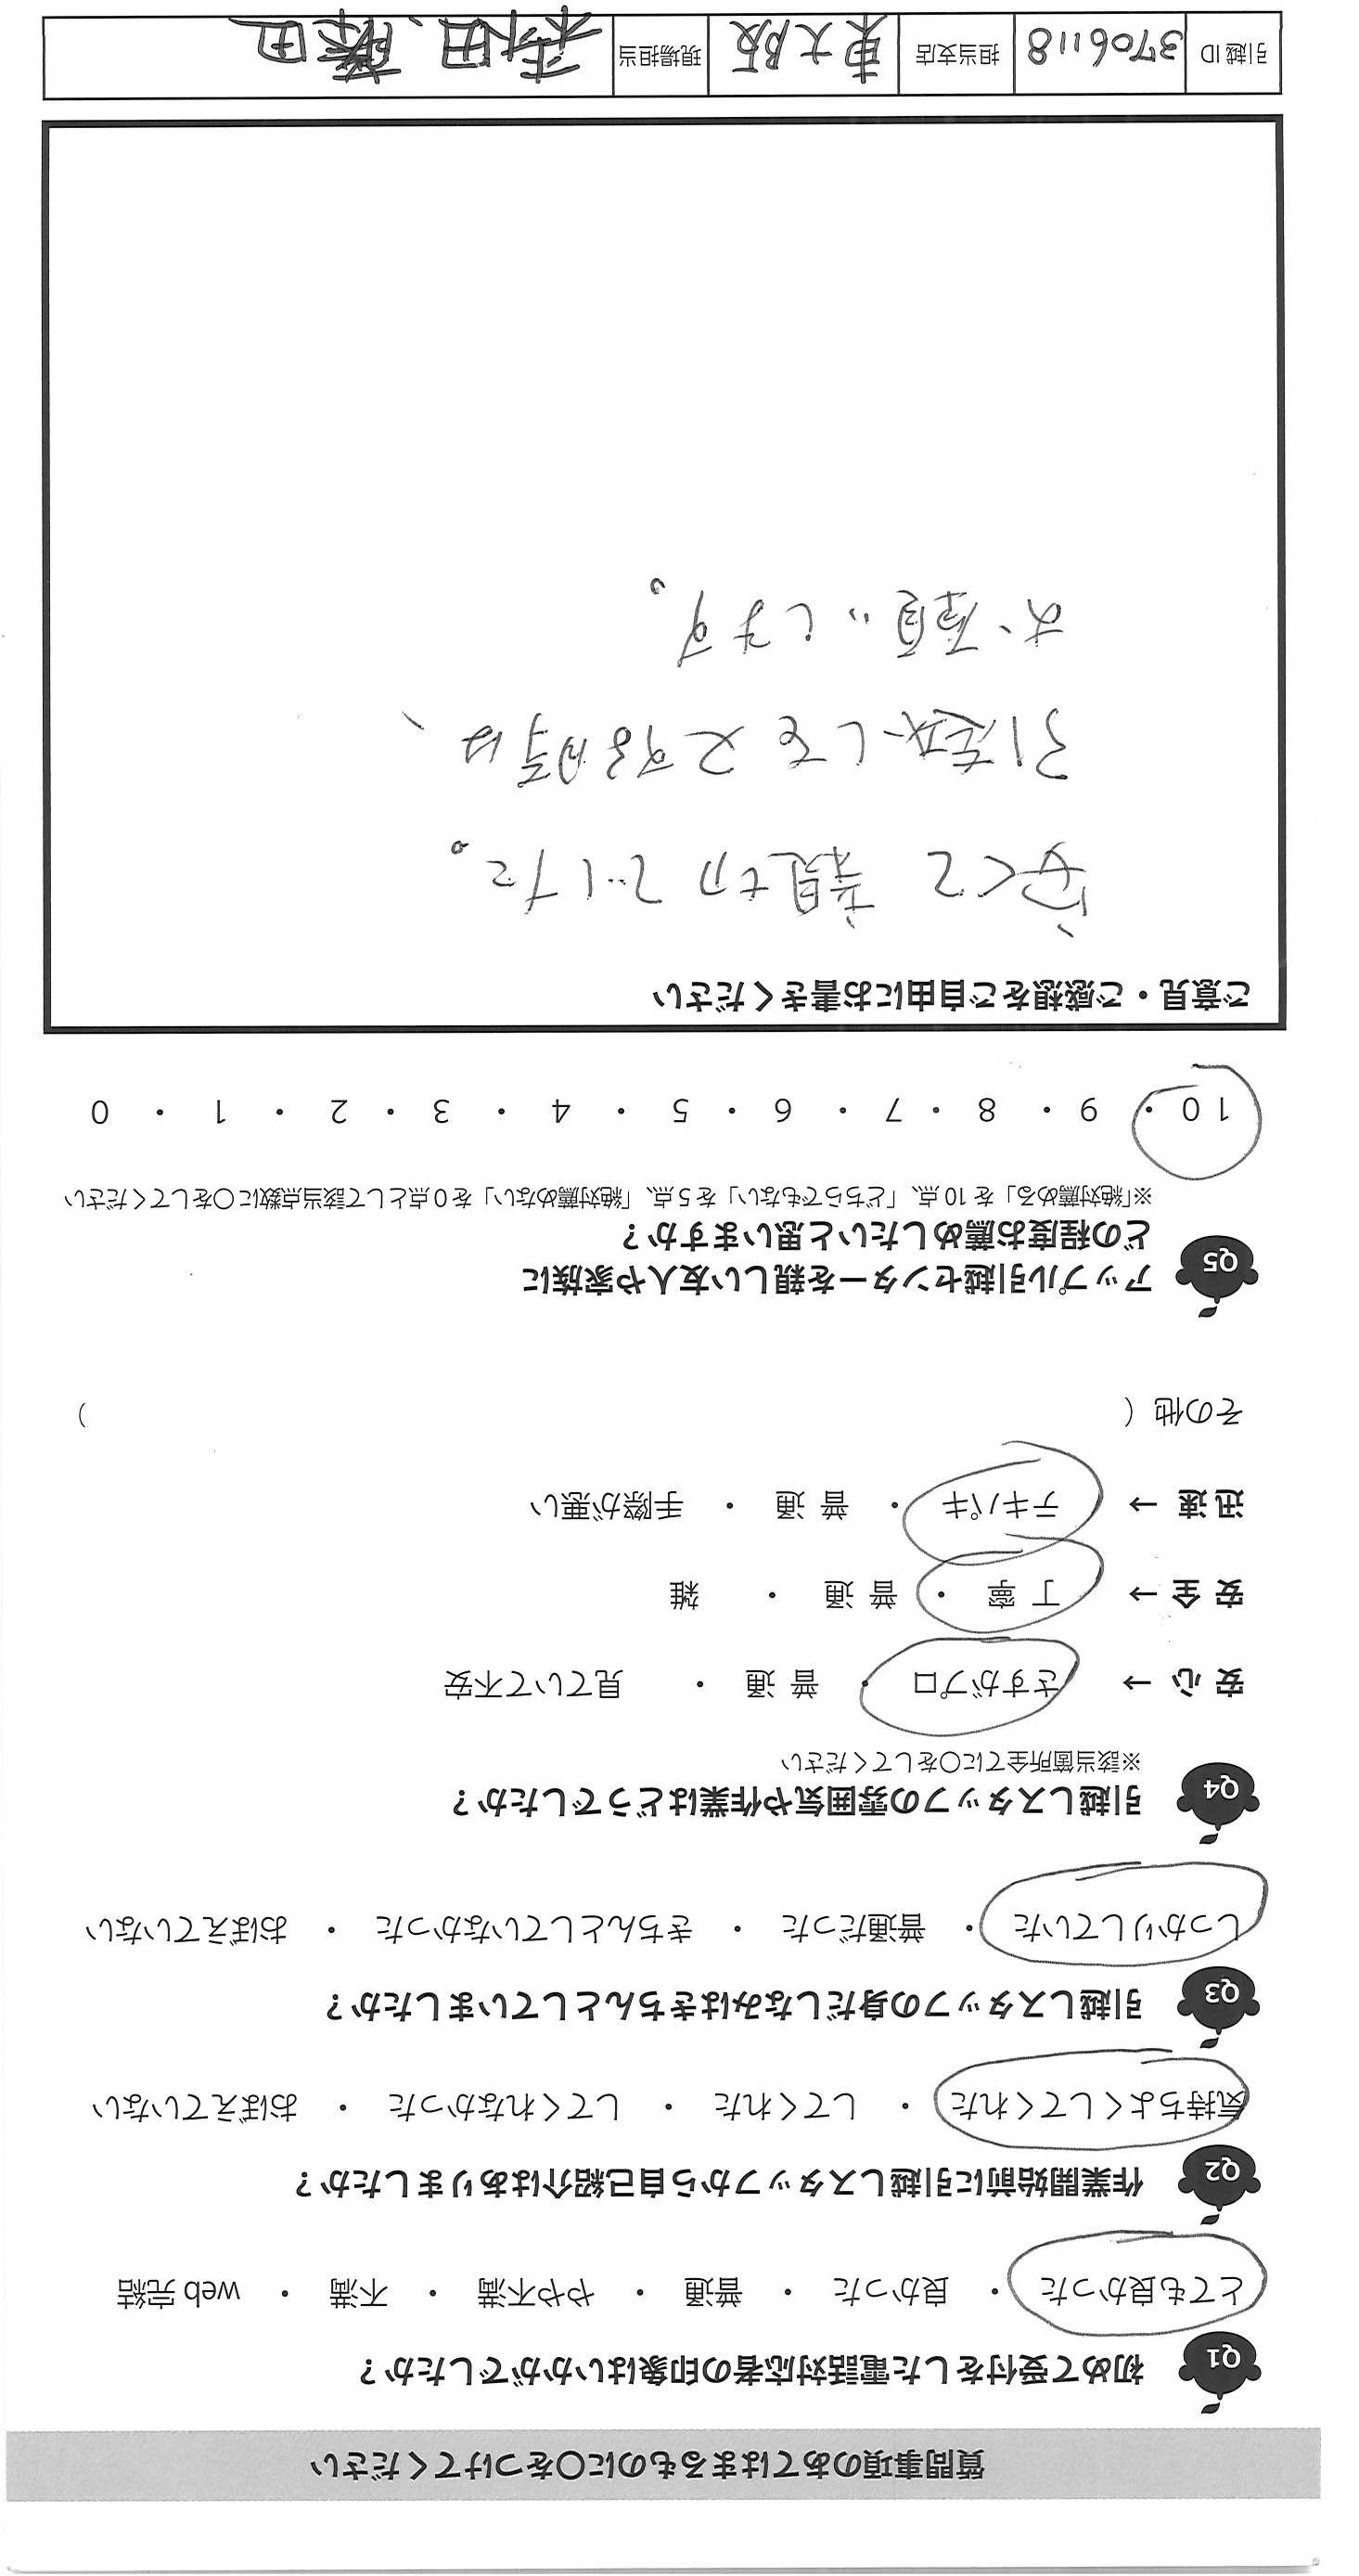 質問事項のあてはまるものに〇をつけてください
Q1 初めて受付をした電話対応者の印象はいかがでしたか？
とても良かった ・ 良かった ・ 普通 ・ やや不満 ・ 不満 ・ web 完結
Q2 作業開始前に引越しスタッフから自己紹介はありましたか？
気持ちよくしてくれた ・ してくれた ・ してくれなかった ・ おぼえていない
Q3 引越しスタッフの身だしなみはきちんとしていましたか？
しっかりしていた ・ 普通だった ・ きちんとしていなかった ・ おぼえていない
Q4 引越しスタッフの雰囲気や作業はどうでしたか？
※該当箇所全てに〇をしてください
安 心 → さすがプロ ・ 普 通 ・ 見ていて不安
安 全 → 丁 寧 ・ 普 通 ・ 雑
迅 速 → テキパキ ・ 普 通 ・ 手際が悪い
その他（ ）
Q5 アップル引越センターを親しい友人や家族に
どの程度お薦めしたいと思いますか？
※「絶対薦める」を 10 点、「どちらでもない」を 5 点、「絶対薦めない」を 0 点として該当点数に〇をしてください
10 ・ 9 ・ 8 ・ 7 ・ 6 ・ 5 ・ 4 ・ 3 ・ 2 ・ 1 ・ 0
ご意見・ご感想をご自由にお書きください
安くて 親切でした。
引越しを又する時は、
お願いします。
引越 ID 3706118 担当支店 東大阪 現場担当 森田、藤田